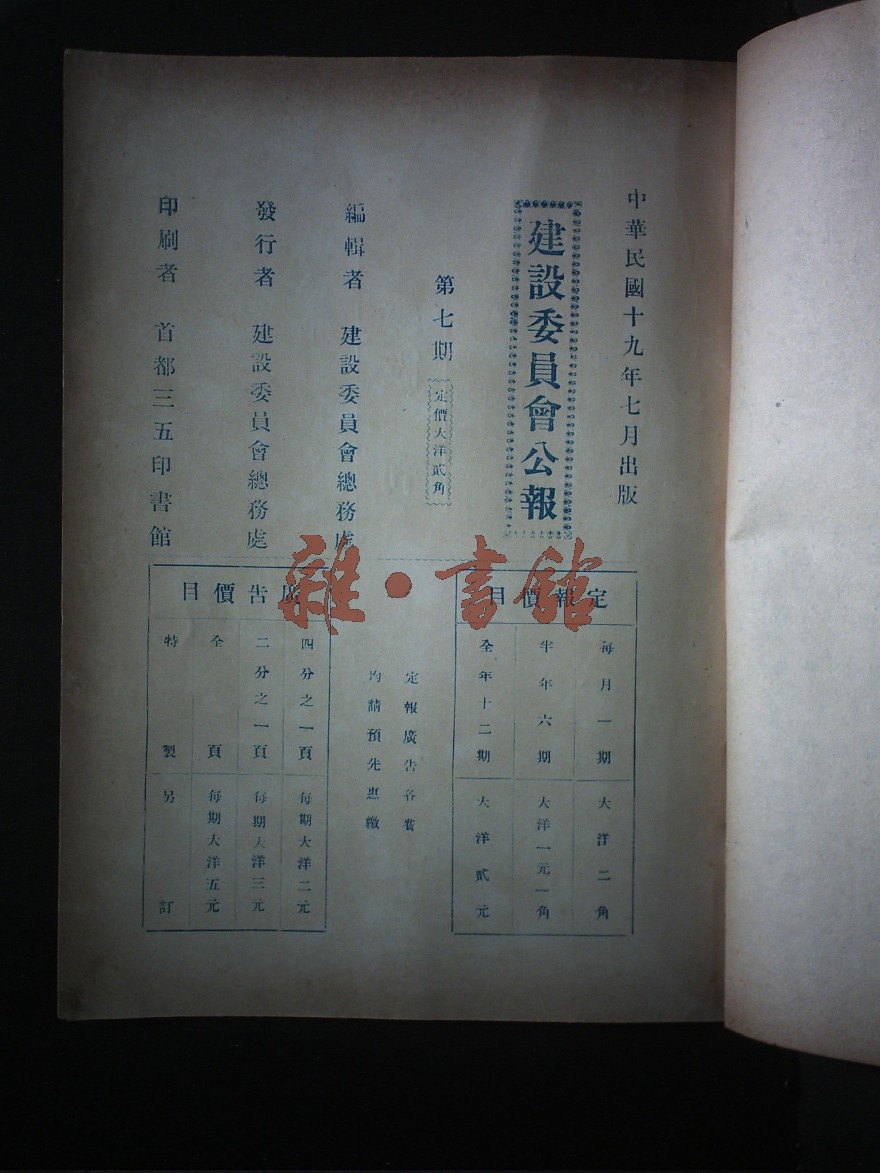 中華民國十九年七月出版
建設委員會公報
第七期 定價大洋貳角
編輯者 建設委員會總務處
發行者 建設委員會總務處
印刷者 首都三五印書館
定報價目
每月一期 大洋二角
半年六期 大洋一元一角
全年十二期 大洋貳元
定報廣告各費
均請預先惠繳
廣告價目
四分之一頁 每期大洋二元
二分之一頁 每期大洋三元
全頁 每期大洋五元
特製 另訂
雜·書館